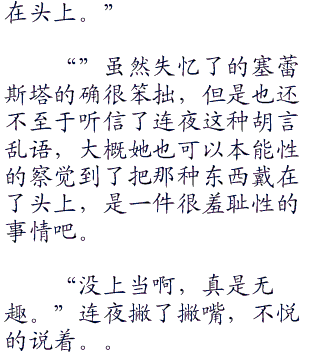 在头上。”
“” 虽然失忆了的塞蕾
斯塔的确很笨拙，但是也还
不至于听信了连夜这种胡言
乱语，大概她也可以本能性
的察觉到了把那种东西戴在
了头上，是一件很羞耻性的
事情吧。
“没上当啊，真是无
趣。”连夜撇了撇嘴，不悦
的说着。。